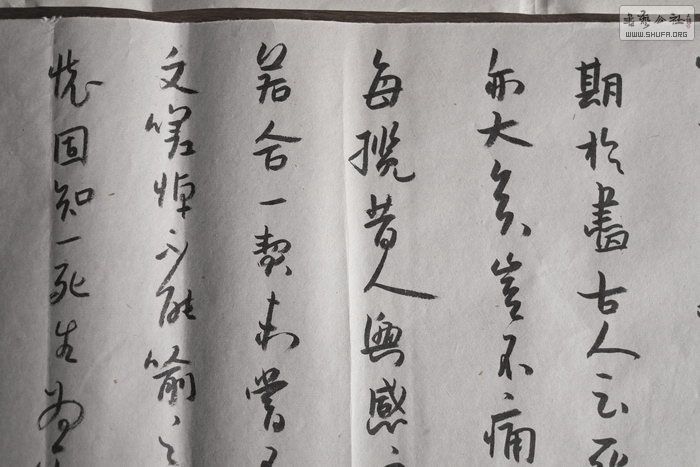 書藝公社
WWW.SHUFA.ORG
期於盡古人云死
亦大矣豈不痛
每攬昔人興感
若合一契未嘗不
文嗟悼不能喻之
懷固知一死生為